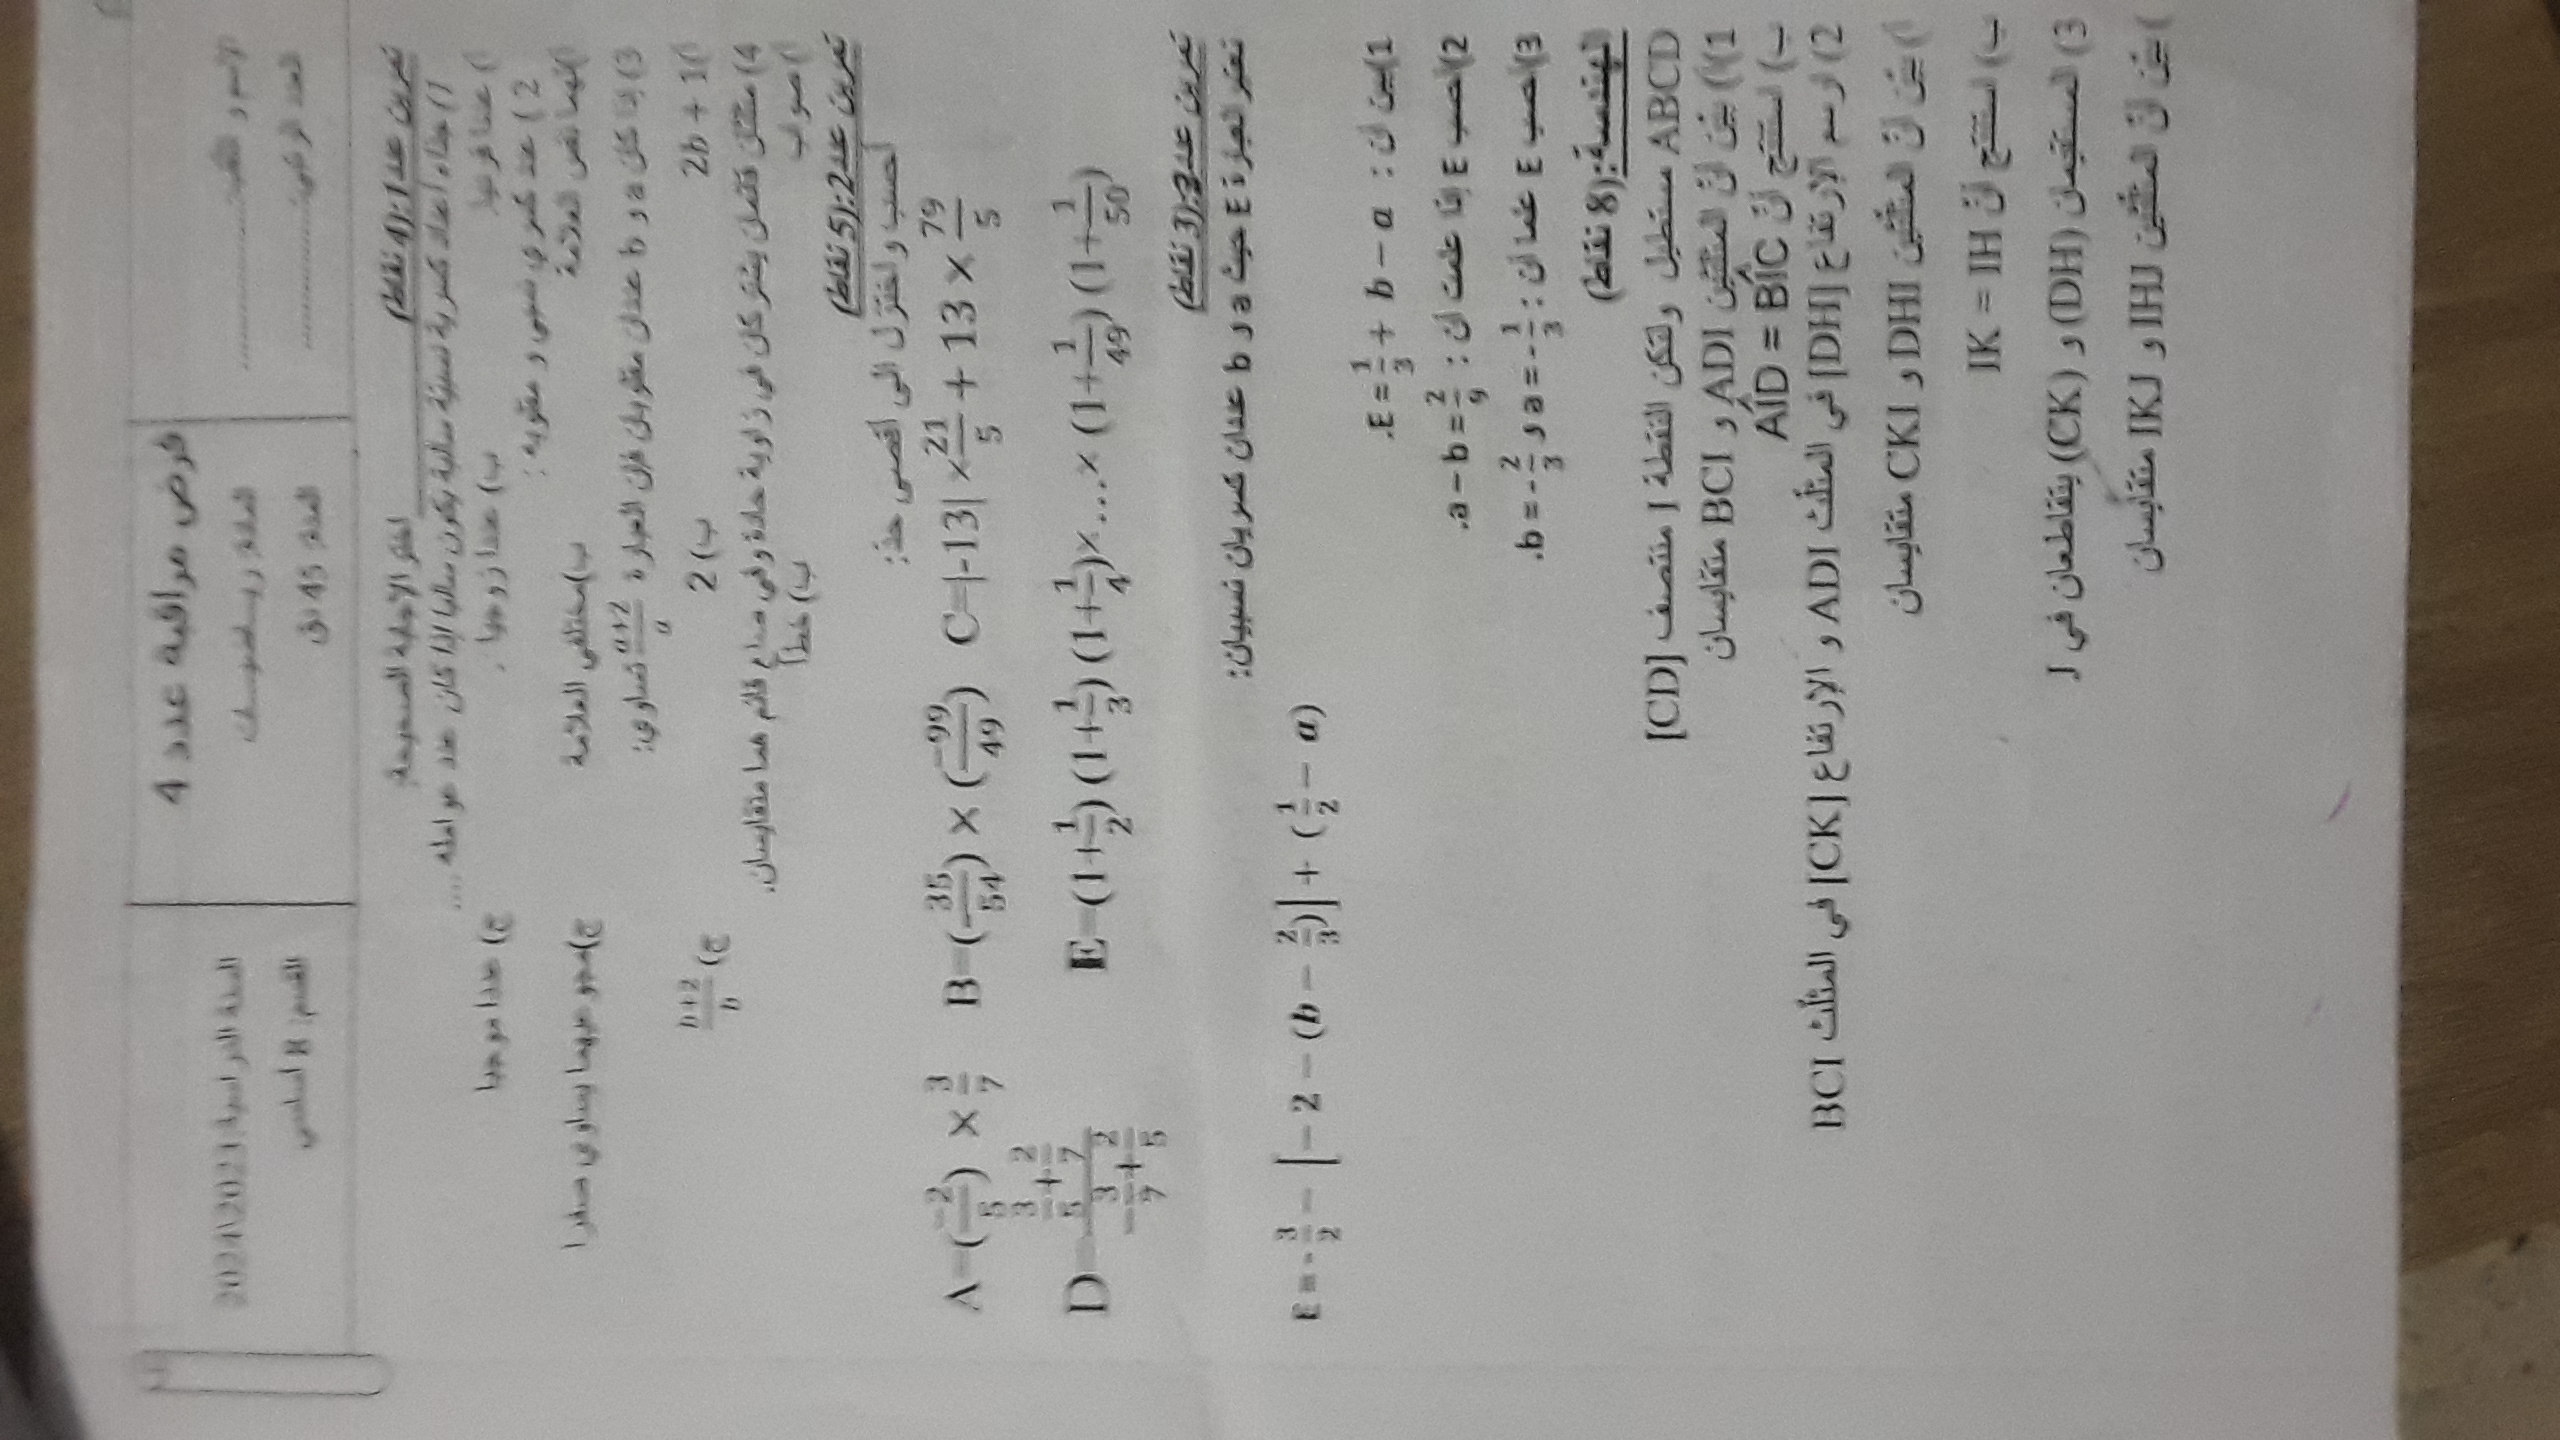 الاسم و اللقب:.................... فرض مراقبة عدد 4
العدد الرتبي:.................... المادة: رياضيات السنة الدراسية 2023\2024
المدة: 45 دق القسم: 8 أساسي
تمرين عدد1:(4 نقاط) اختر الإجابة الصحيحة
1) جذاء أعداد كسرية نسبية سالبة يكون سالبا إذا كان عدد عوامله ....
أ) عددا فرديا ب) عددا زوجيا . ج) عددا موجبا
2) عدد كسري نسبي و مقلوبه :
أ) لهما نفس العلامة ب)مختلفي العلامة ج)مجموعهما يساوي صفرا
3) إذا كان a و b عددان مقلوبان فإن العبارة \frac{a+2}{a} تساوي:
أ) 2b + 1 ب) 2 ج) \frac{b+2}{b}
4) مثلثان قائمان يشتركان في زاوية حادة وفي ضلع قائم هما متقايسان.
أ) صواب ب) خطأ
تمرين عدد2:(5 نقاط)
أحسب و اختزل الى أقصى حد:
A=(\frac{-2}{5}) × \frac{3}{7} B=(\frac{35}{54}) × (\frac{-99}{49}) C=|-13| × \frac{21}{5} + 13 × \frac{79}{5}
D=\frac{\frac{3}{5}+\frac{2}{7}}{-\frac{3}{7}+\frac{2}{5}} E=(1+\frac{1}{2}) (1+\frac{1}{3}) (1+\frac{1}{4})×....× (1+\frac{1}{49}) (1+\frac{1}{50})
تمرين عدد3:(3 نقاط)
نعتبر العبارة E حيث a و b عددان كسريان نسبيان:
E = -\frac{3}{2} - [- 2 - (b - \frac{2}{3})] + (\frac{1}{2} - a)
1)بين أن : E = \frac{1}{3} + b - a.
2)احسب E إذا علمت أن : a - b = \frac{2}{9}.
3)احسب E علما أن : a = -\frac{1}{3} و b = -\frac{2}{3}.
الهندسة:(8 نقاط)
ABCD مستطيل ولتكن النقطة I منتصف [CD]
1)أ) بيّن أنّ المثلثين ADI و BCI متقايسان
ب) استنتج أنّ AÎD = BÎC
2) ارسم الإرتفاع [DH] في المثلث ADI و الإرتفاع [CK] في المثلث BCI
أ) بيّن أنّ المثلثين DHI و CKI متقايسان
ب) استنتج أنّ IK = IH
3) المستقيمان (DH) و (CK) يتقاطعان في J
أ) بيّن أنّ المثلثين IHJ و IKJ متقايسان